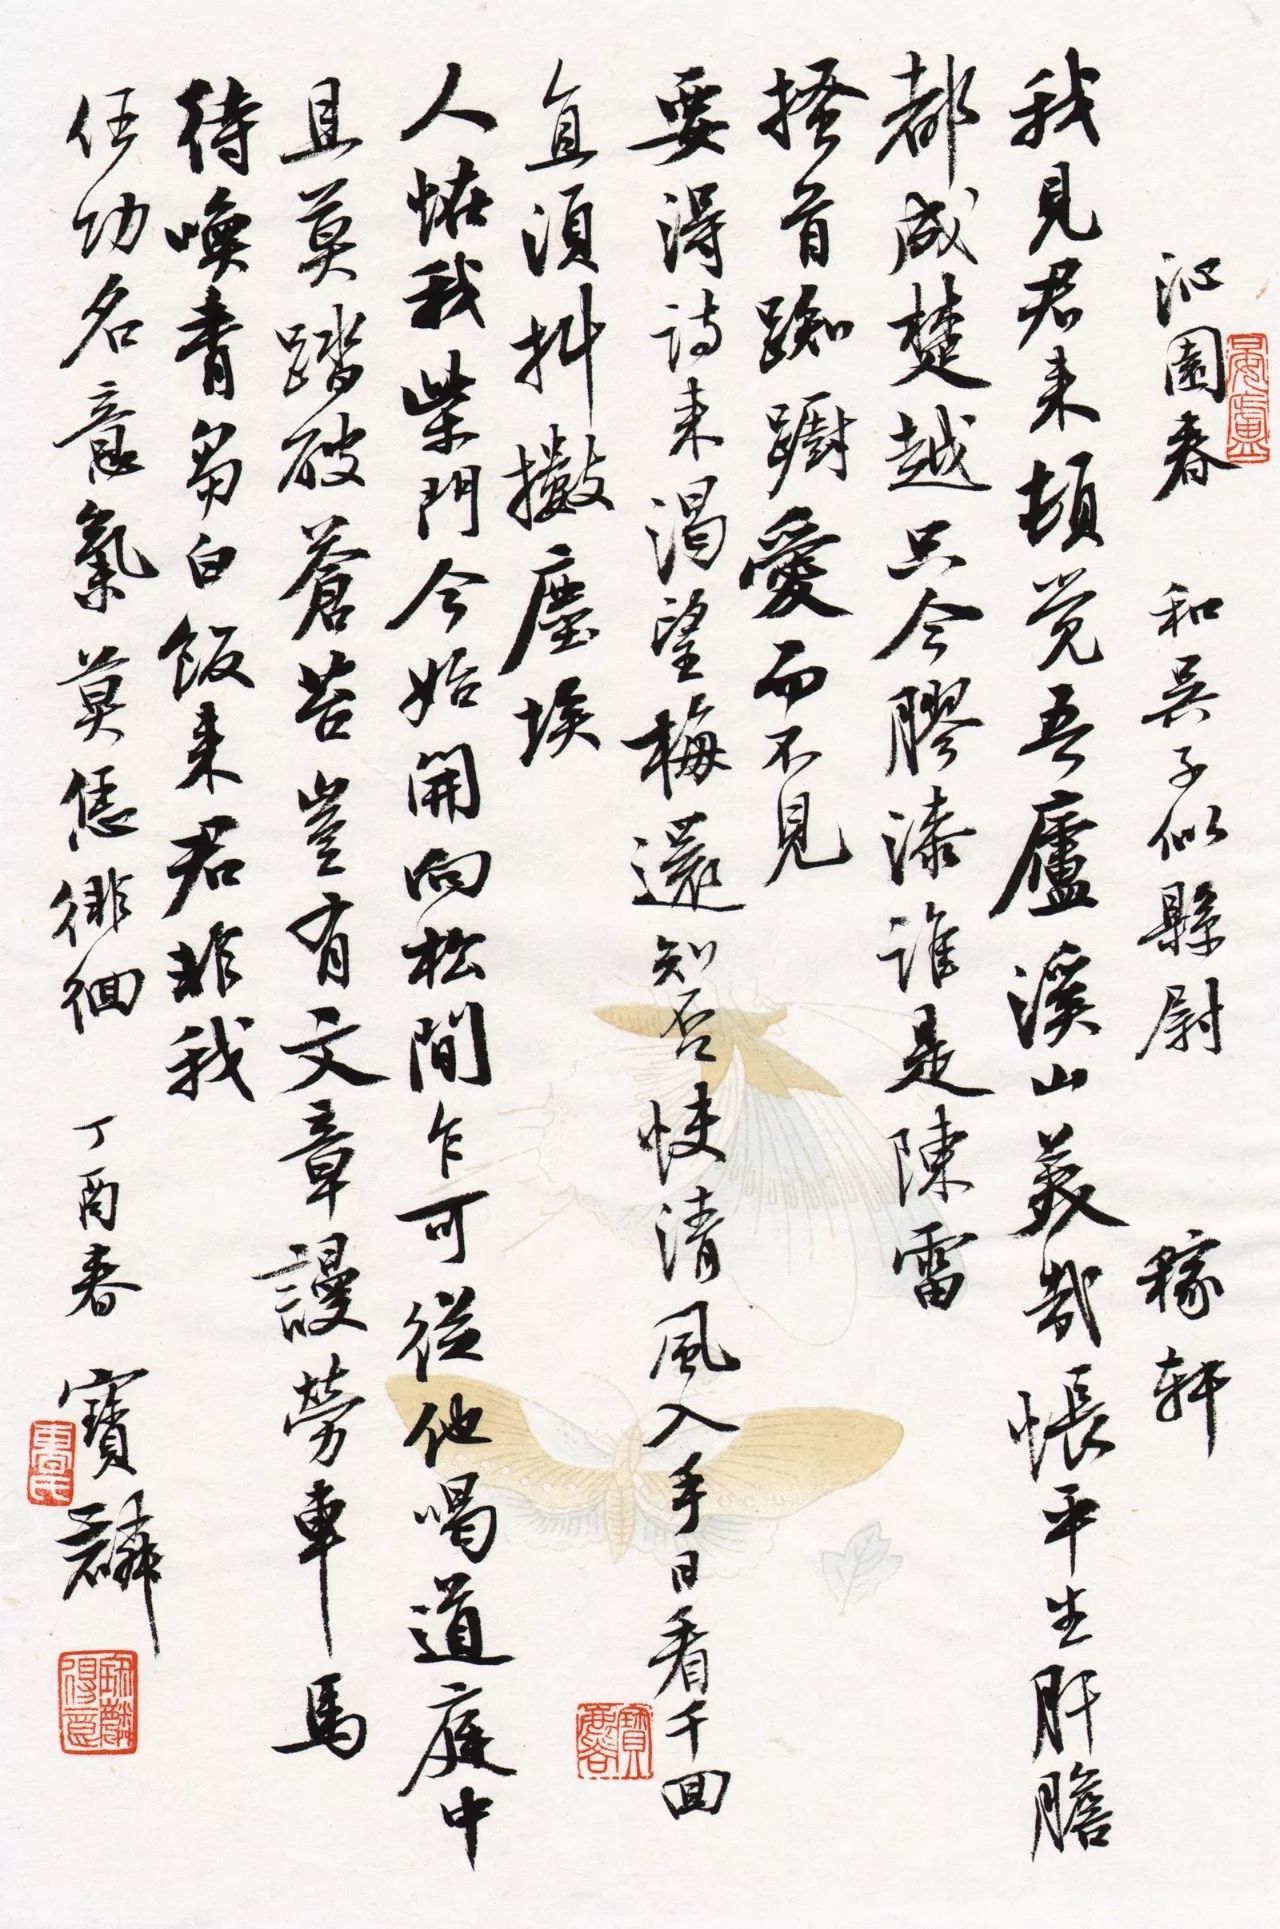 沁園春　和吳子似縣尉　稼軒
我見君來頓覺吾廬溪山美哉悵平生肝膽
都成楚越只今膠漆誰是陳雷
搔首踟躕愛而不見
要得詩來渴望梅還知否快清風入手日看千回
直須抖擻塵埃
人怪我柴門今始開向松間乍可從他喝道庭中
且莫踏破蒼苔豈有文章謾勞車馬
待喚青芻白飯來君非我
任功名意氣莫恁徘徊　丁酉春　寶麟